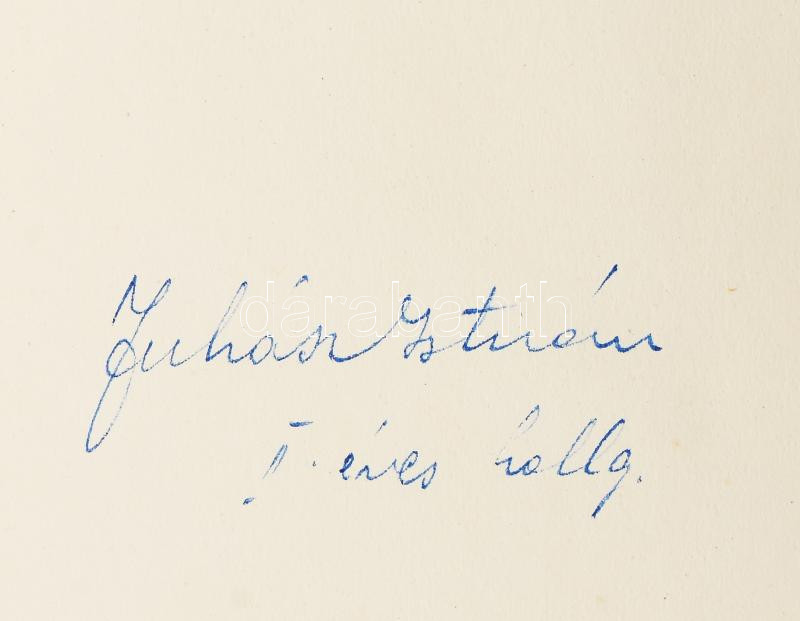 Juhász István
I. éves hallg.
darabanth